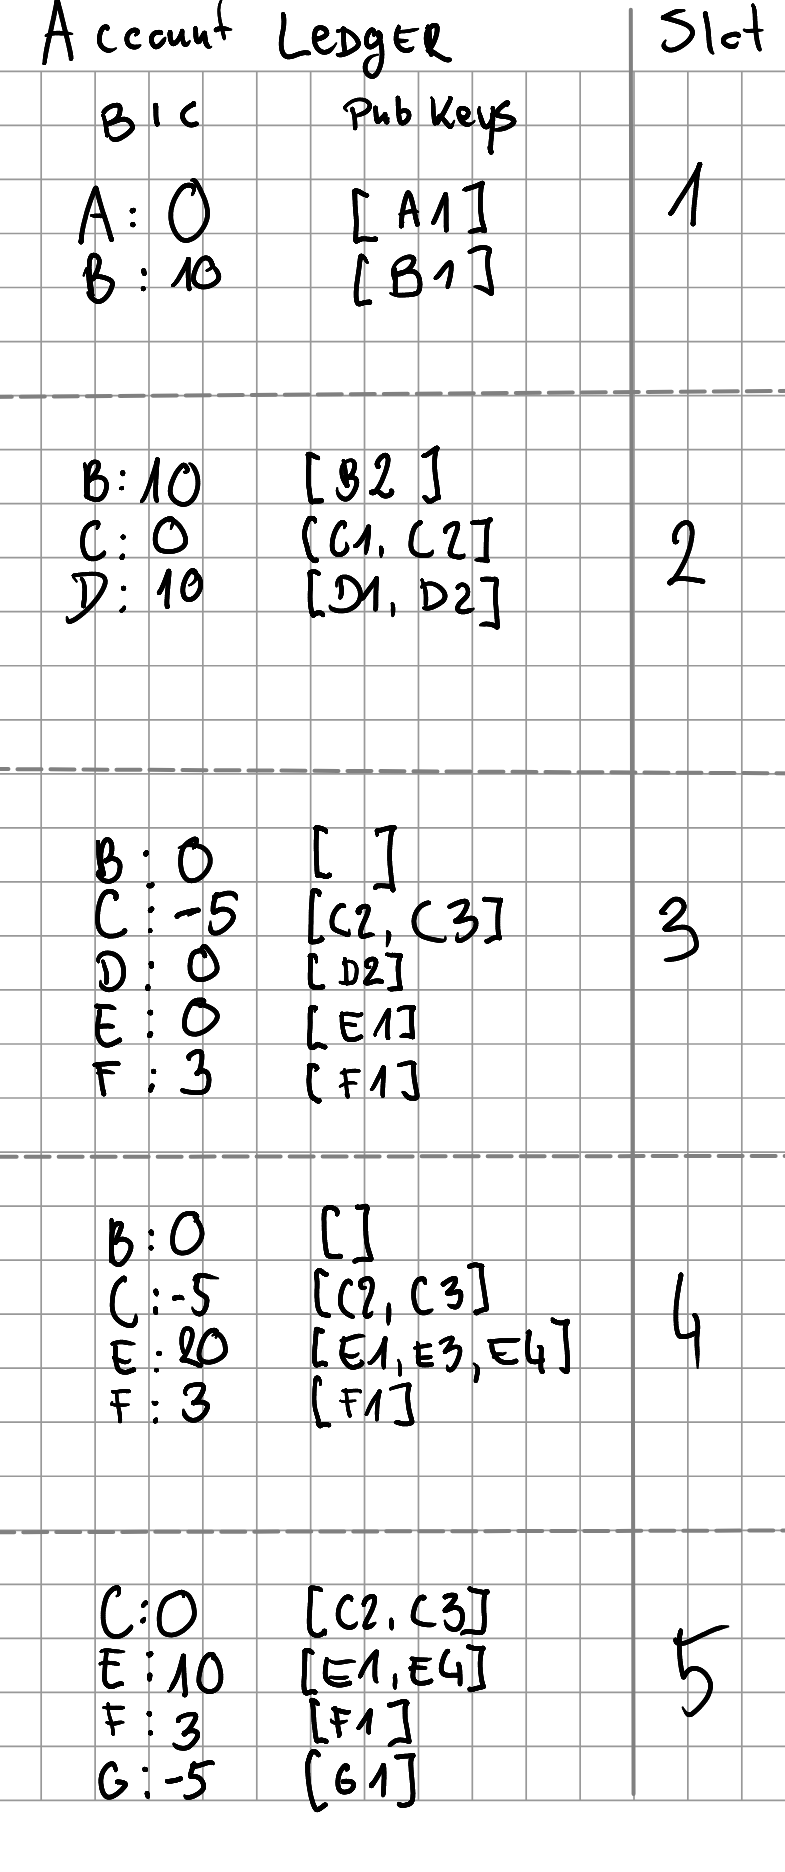 Account LEDgER Slot
BIC Pub Keys
A: 0 [A1] 1
B: 10 [B1]
B: 10 [B2]
C: 0 [C1, C2] 2
D: 10 [D1, D2]
B: 0 [ ]
C: -5 [C2, C3] 3
D: 0 [D2]
E: 0 [E1]
F: 3 [F1]
B: 0 []
C: -5 [C2, C3] 4
E: 20 [E1, E3, E4]
F: 3 [F1]
C: 0 [C2, C3]
E: 10 [E1, E4] 5
F: 3 [F1]
G: -5 [G1]